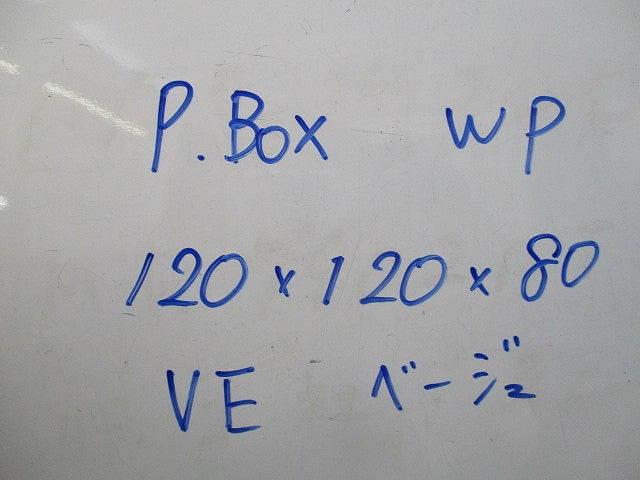 P.Box WP
120×120×80
VE ベージュ